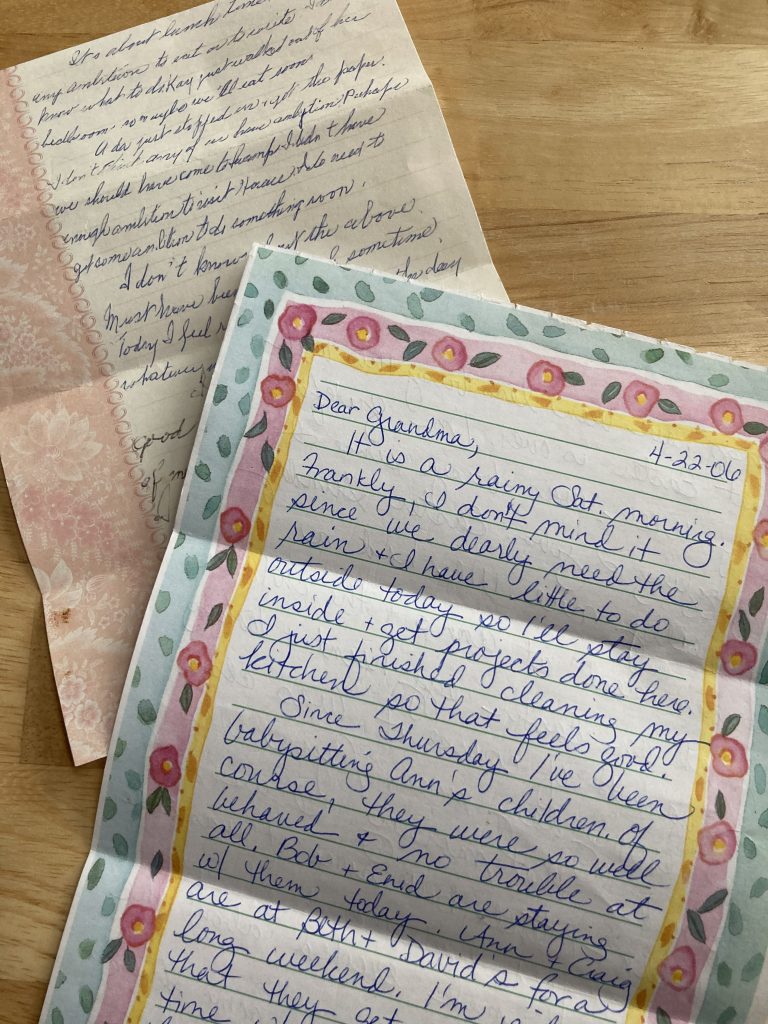 It's about lunch time.
any ambition to eat or to write I don't
know what to do. Kay just walked out of her
bedroom so maybe we'll eat soon.
Ada just stopped in & got the paper.
I don't think any of us have ambition. Perhaps
we should have come to camp. I didn't have
enough ambition to visit Horace. I do need to
get some ambition to do something soon.
I don't know about the above.
Must have been sometime
Today I feel the day
whatever
good
of
Dear Grandma,
4-22-06
It is a rainy Sat. morning.
Frankly, I don't mind it
since we dearly need the
rain + I have little to do
outside today so I'll stay
inside + get projects done here.
I just finished cleaning my
kitchen so that feels good.
Since Thursday I've been
babysitting Ann's children. Of
course, they were so well
behaved + no trouble at
all. Bob + Enid are staying
w/ them today. Ann + Craig
are at Beth + David's for a
long weekend. I'm
that they get
time